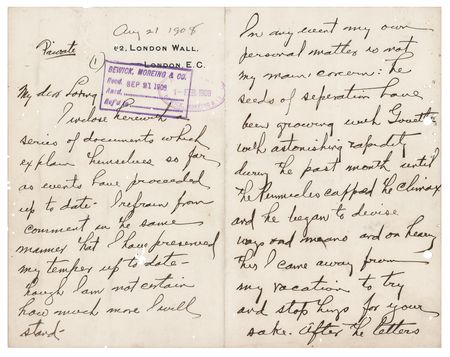 Aug 21 1908
Private
62, LONDON WALL,
LONDON, E.C.
(1)
BEWICK, MOREING & CO.
Recd. SEP 21 1908
Answd.
Ref'd to
My dear Loring
I enclose herewith a
series of documents which
explain themselves so far
as events have proceeded
up to date. I refrain from
comment in the same
manner that I have preserved
my temper up to date –
though I am not certain
how much more I will
stand –
In any event my own
personal matter is not
my main concern: the
seeds of seperation have
been growing with
with astonishing rapidity
during the past month until
the capped the climax
and he began to devise
ways and means and on hearing
this I came away from
my vacation to try
and stop things for your
sake. After the letters